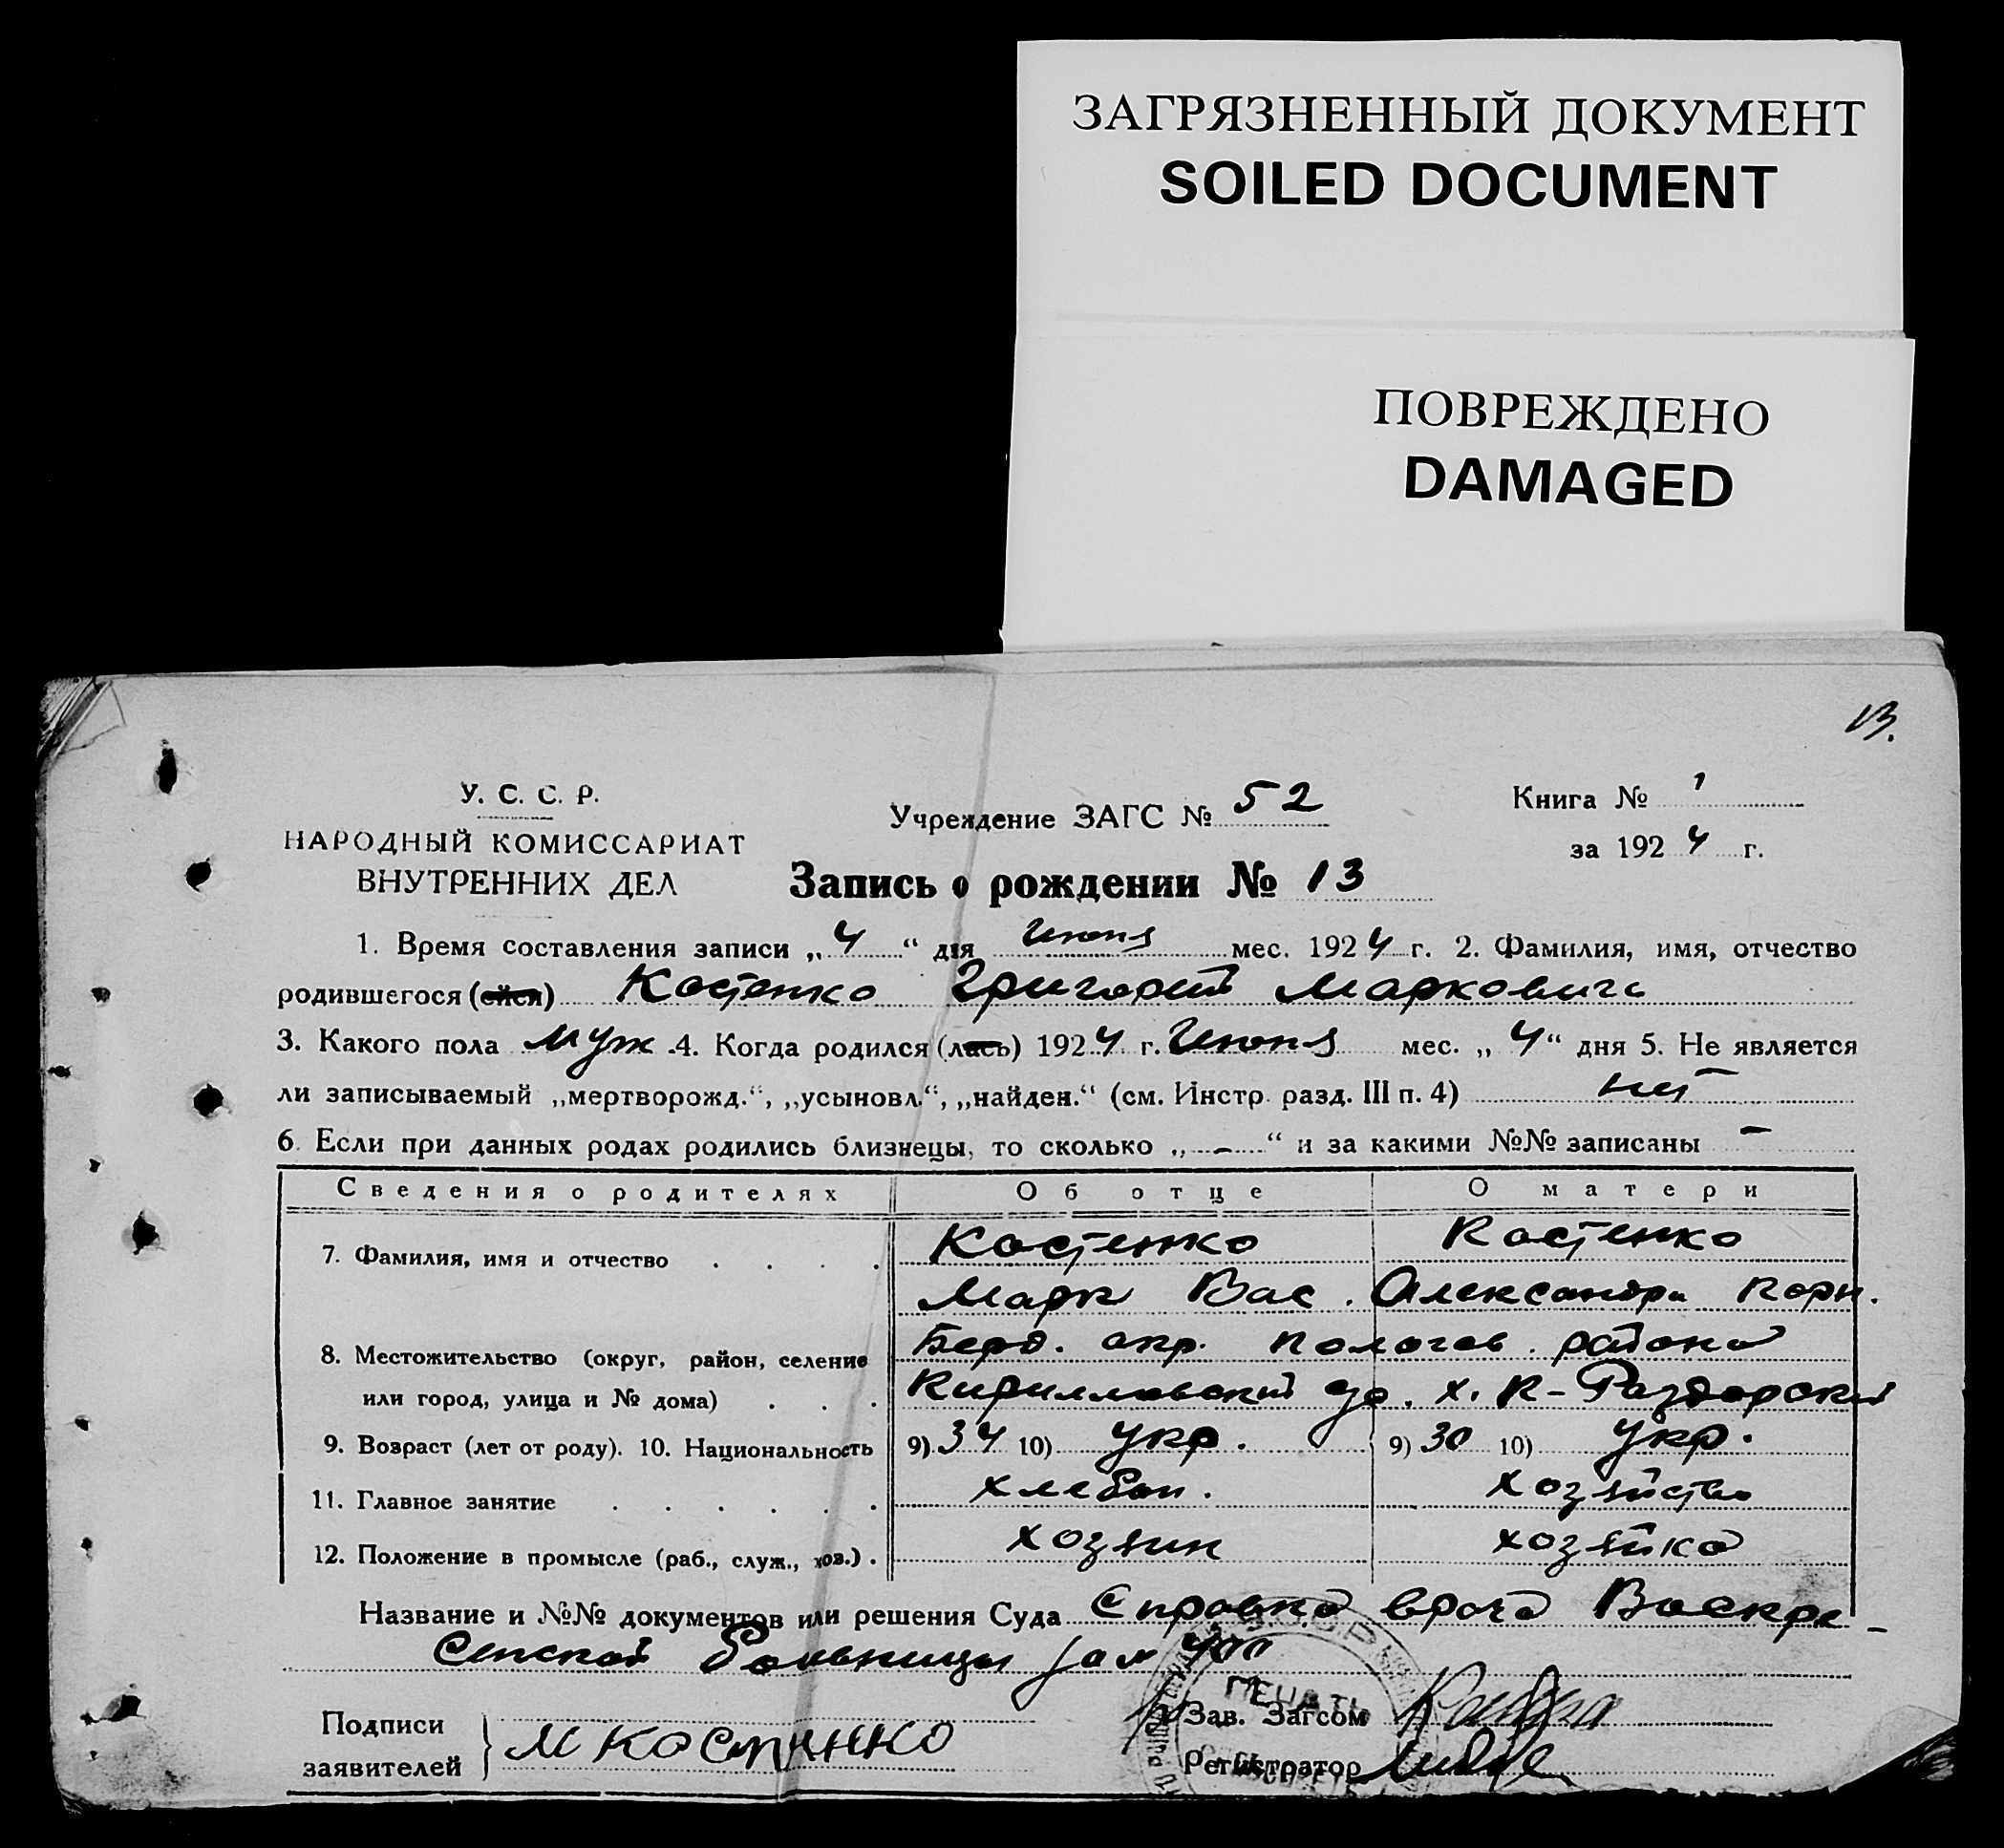 ЗАГРЯЗНЕННЫЙ ДОКУМЕНТ
SOILED DOCUMENT
ПОВРЕЖДЕНО
DAMAGED
13.
У. С. С. Р.
НАРОДНЫЙ КОМИССАРИАТ
ВНУТРЕННИХ ДЕЛ
Учреждение ЗАГС № 52
Книга № 1
за 1924 г.
Запись о рождении № 13
1. Время составления записи „4“ дня Июня мес. 1924 г. 2. Фамилия, имя, отчество
родившегося (ейся) Костенко Григорий Маркович
3. Какого пола муж. 4. Когда родился (лась) 1924 г. Июня мес. „4“ дня 5. Не является
ли записываемый „мертворожд.“, „усыновл.“, „найден.“ (см. Инстр. разд. III п. 4) нет
6. Если при данных родах родились близнецы, то сколько „-“ и за какими №№ записаны -
Сведения о родителях Об отце О матери
7. Фамилия, имя и отчество . . . . Костенко Костенко
Марк Вас. Александра Корн.
8. Местожительство (округ, район, селение Берд. окр. Пологов. района
или город, улица и № дома) . . . Кирилловский х. К-Раздорский
9. Возраст (лет от роду). 10. Национальность 9) 34 10) Укр. 9) 30 10) Укр.
11. Главное занятие . . . . . . хлебоп. хозяйство
12. Положение в промысле (раб., служ., хоз.) . хозяин хозяйка
Название и №№ документов или решения Суда Справка врача Воскре-
сенской больницы за № 400
ПЕЧАТЬ
Подписи
заявителей } М Костенко
Зав. Загсом
Регистратор